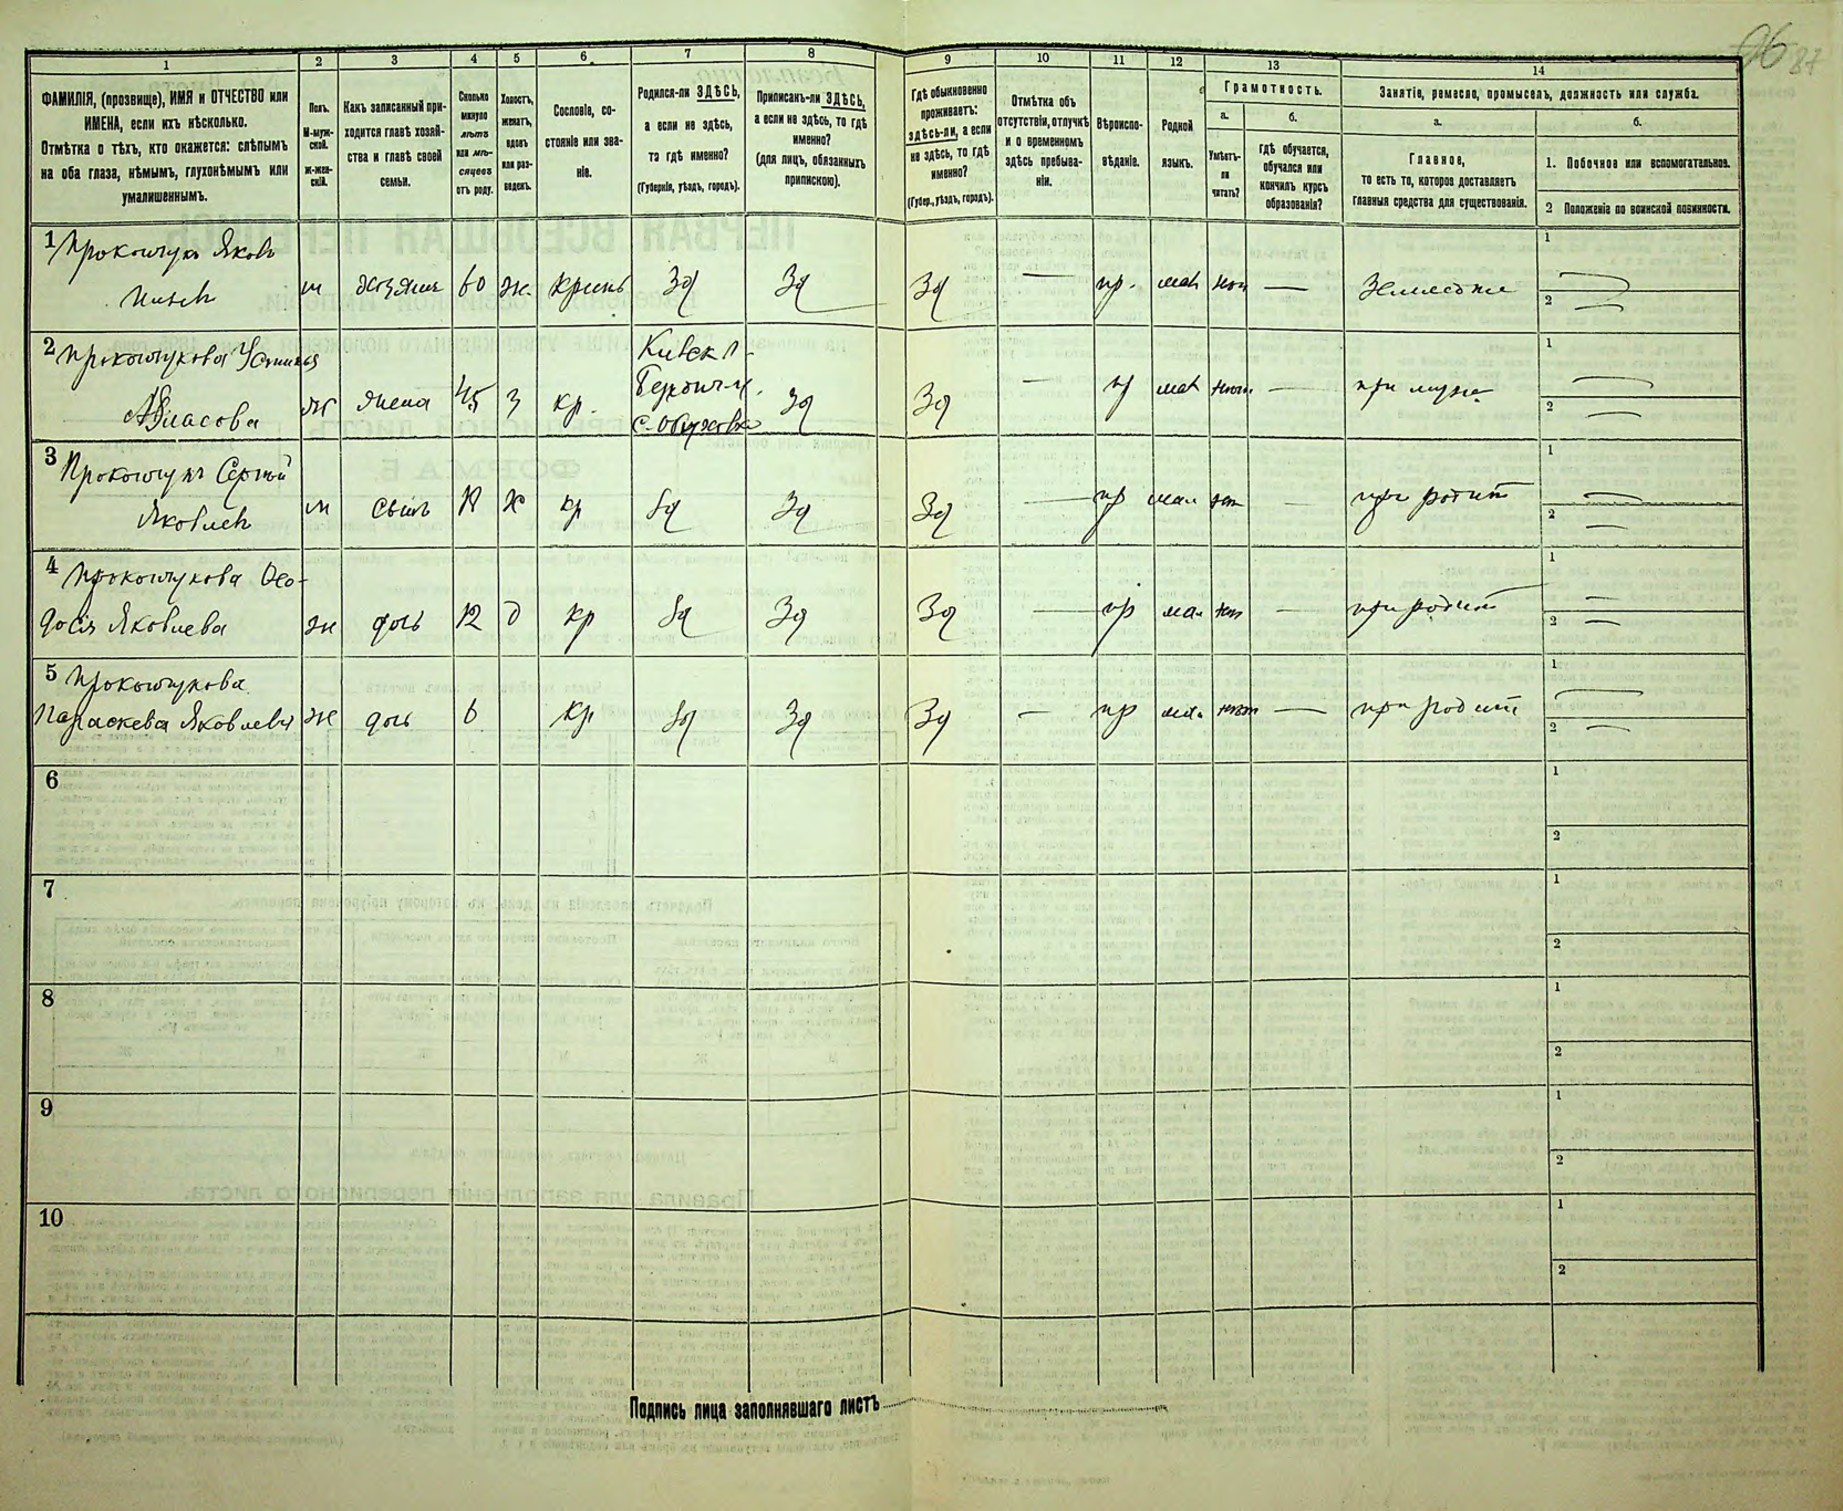 96 87
1
ФАМИЛІЯ, (прозвище), ИМЯ и ОТЧЕСТВО или
ИМЕНА, если ихъ нѣсколько.
Отмѣтка о тѣхъ, кто окажется: слѣпымъ
на оба глаза, нѣмымъ, глухонѣмымъ или
умалишеннымъ.
2
Полъ.
М-муж-
ской.
Ж-жен-
скій.
3
Какъ записанный при-
ходится главѣ хозяй-
ства и главѣ своей
семьи.
4
Сколько
минуло
лѣтъ
или мѣ-
сяцевъ
отъ роду.
5
Холостъ,
женатъ,
вдовъ
или раз-
веденъ.
6
Сословіе, со-
стояніе или зва-
ніе.
7
Родился-ли ЗДѢСЬ,
а если не здѣсь,
то гдѣ именно?
(Губернія, уѣздъ, городъ).
8
Приписанъ-ли ЗДѢСЬ,
а если не здѣсь, то гдѣ
именно?
(для лицъ, обязанныхъ
припискою).
9
Гдѣ обыкновенно
проживаетъ:
здѣсь-ли, а если
не здѣсь, то гдѣ
именно?
(Губер., уѣздъ, городъ).
10
Отмѣтка объ
отсутствіи, отлучкѣ
и о временномъ
здѣсь пребыва-
ніи.
11
Вѣроиспо-
вѣданіе.
12
Родной
языкъ.
13
Грамотность.
а.
Умѣетъ-
ли
читать?
б.
Гдѣ обучается,
обучался или
кончилъ курсъ
образованія?
14
Занятіе, ремесло, промыселъ, должность или служба.
а.
Главное,
то есть то, которое доставляетъ
главныя средства для существованія.
б.
1. Побочное или вспомогательное.
2 Положеніе по воинской повинности.
1 Прокопчукъ Яковъ
м хозяинъ 60 ж. Зд Зд Зд — пр. мал — 1 2
2 Прокопчукова Устинья
Власова
ж жена 45 З кр.
Киевск г.
Зд Зд — пр мал — при мужѣ 1 2
3 Прокопчукъ Сергѣй
Яковлев
м сынъ Х кр Зд Зд Зд — пр мал нет — при родит 1 2
4 Прокопчукова Ѳео-
досія Яковлева
ж дочь 12 д кр Зд Зд Зд — пр мал нет — при родит 1 2
5 Прокопчукова
Параскева Яковлева
ж дочь 6 кр Зд Зд Зд — пр мал нет — при родит 1 2
6 1 2
7 1 2
8 1 2
9 1 2
10 1 2
Подпись лица заполнявшаго листъ